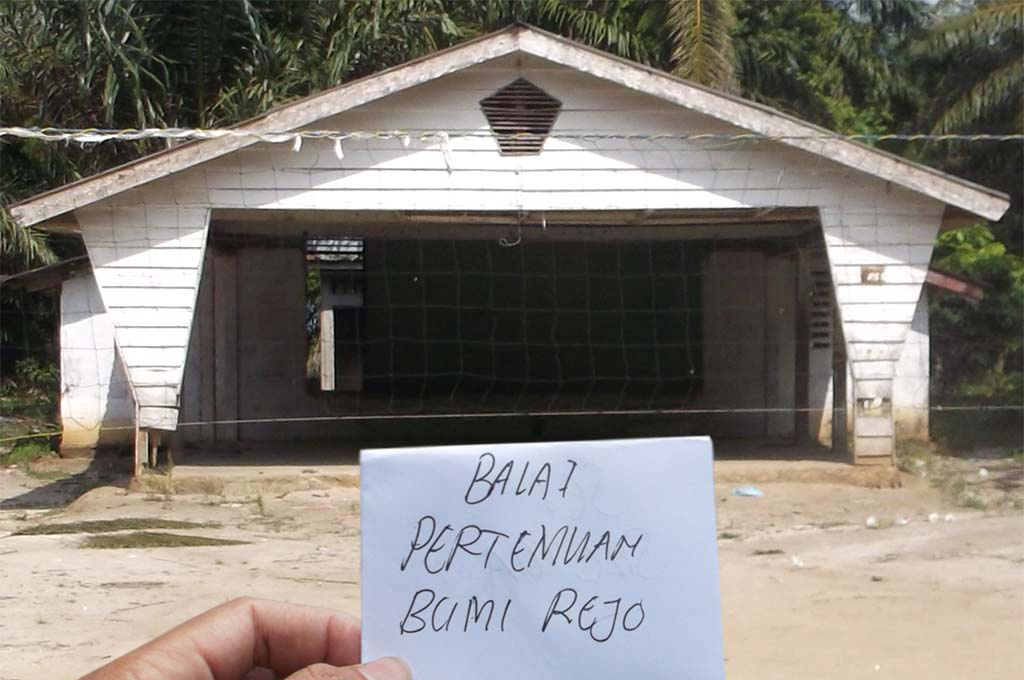 BALAI
PERTEMUAN
BUMI REJO